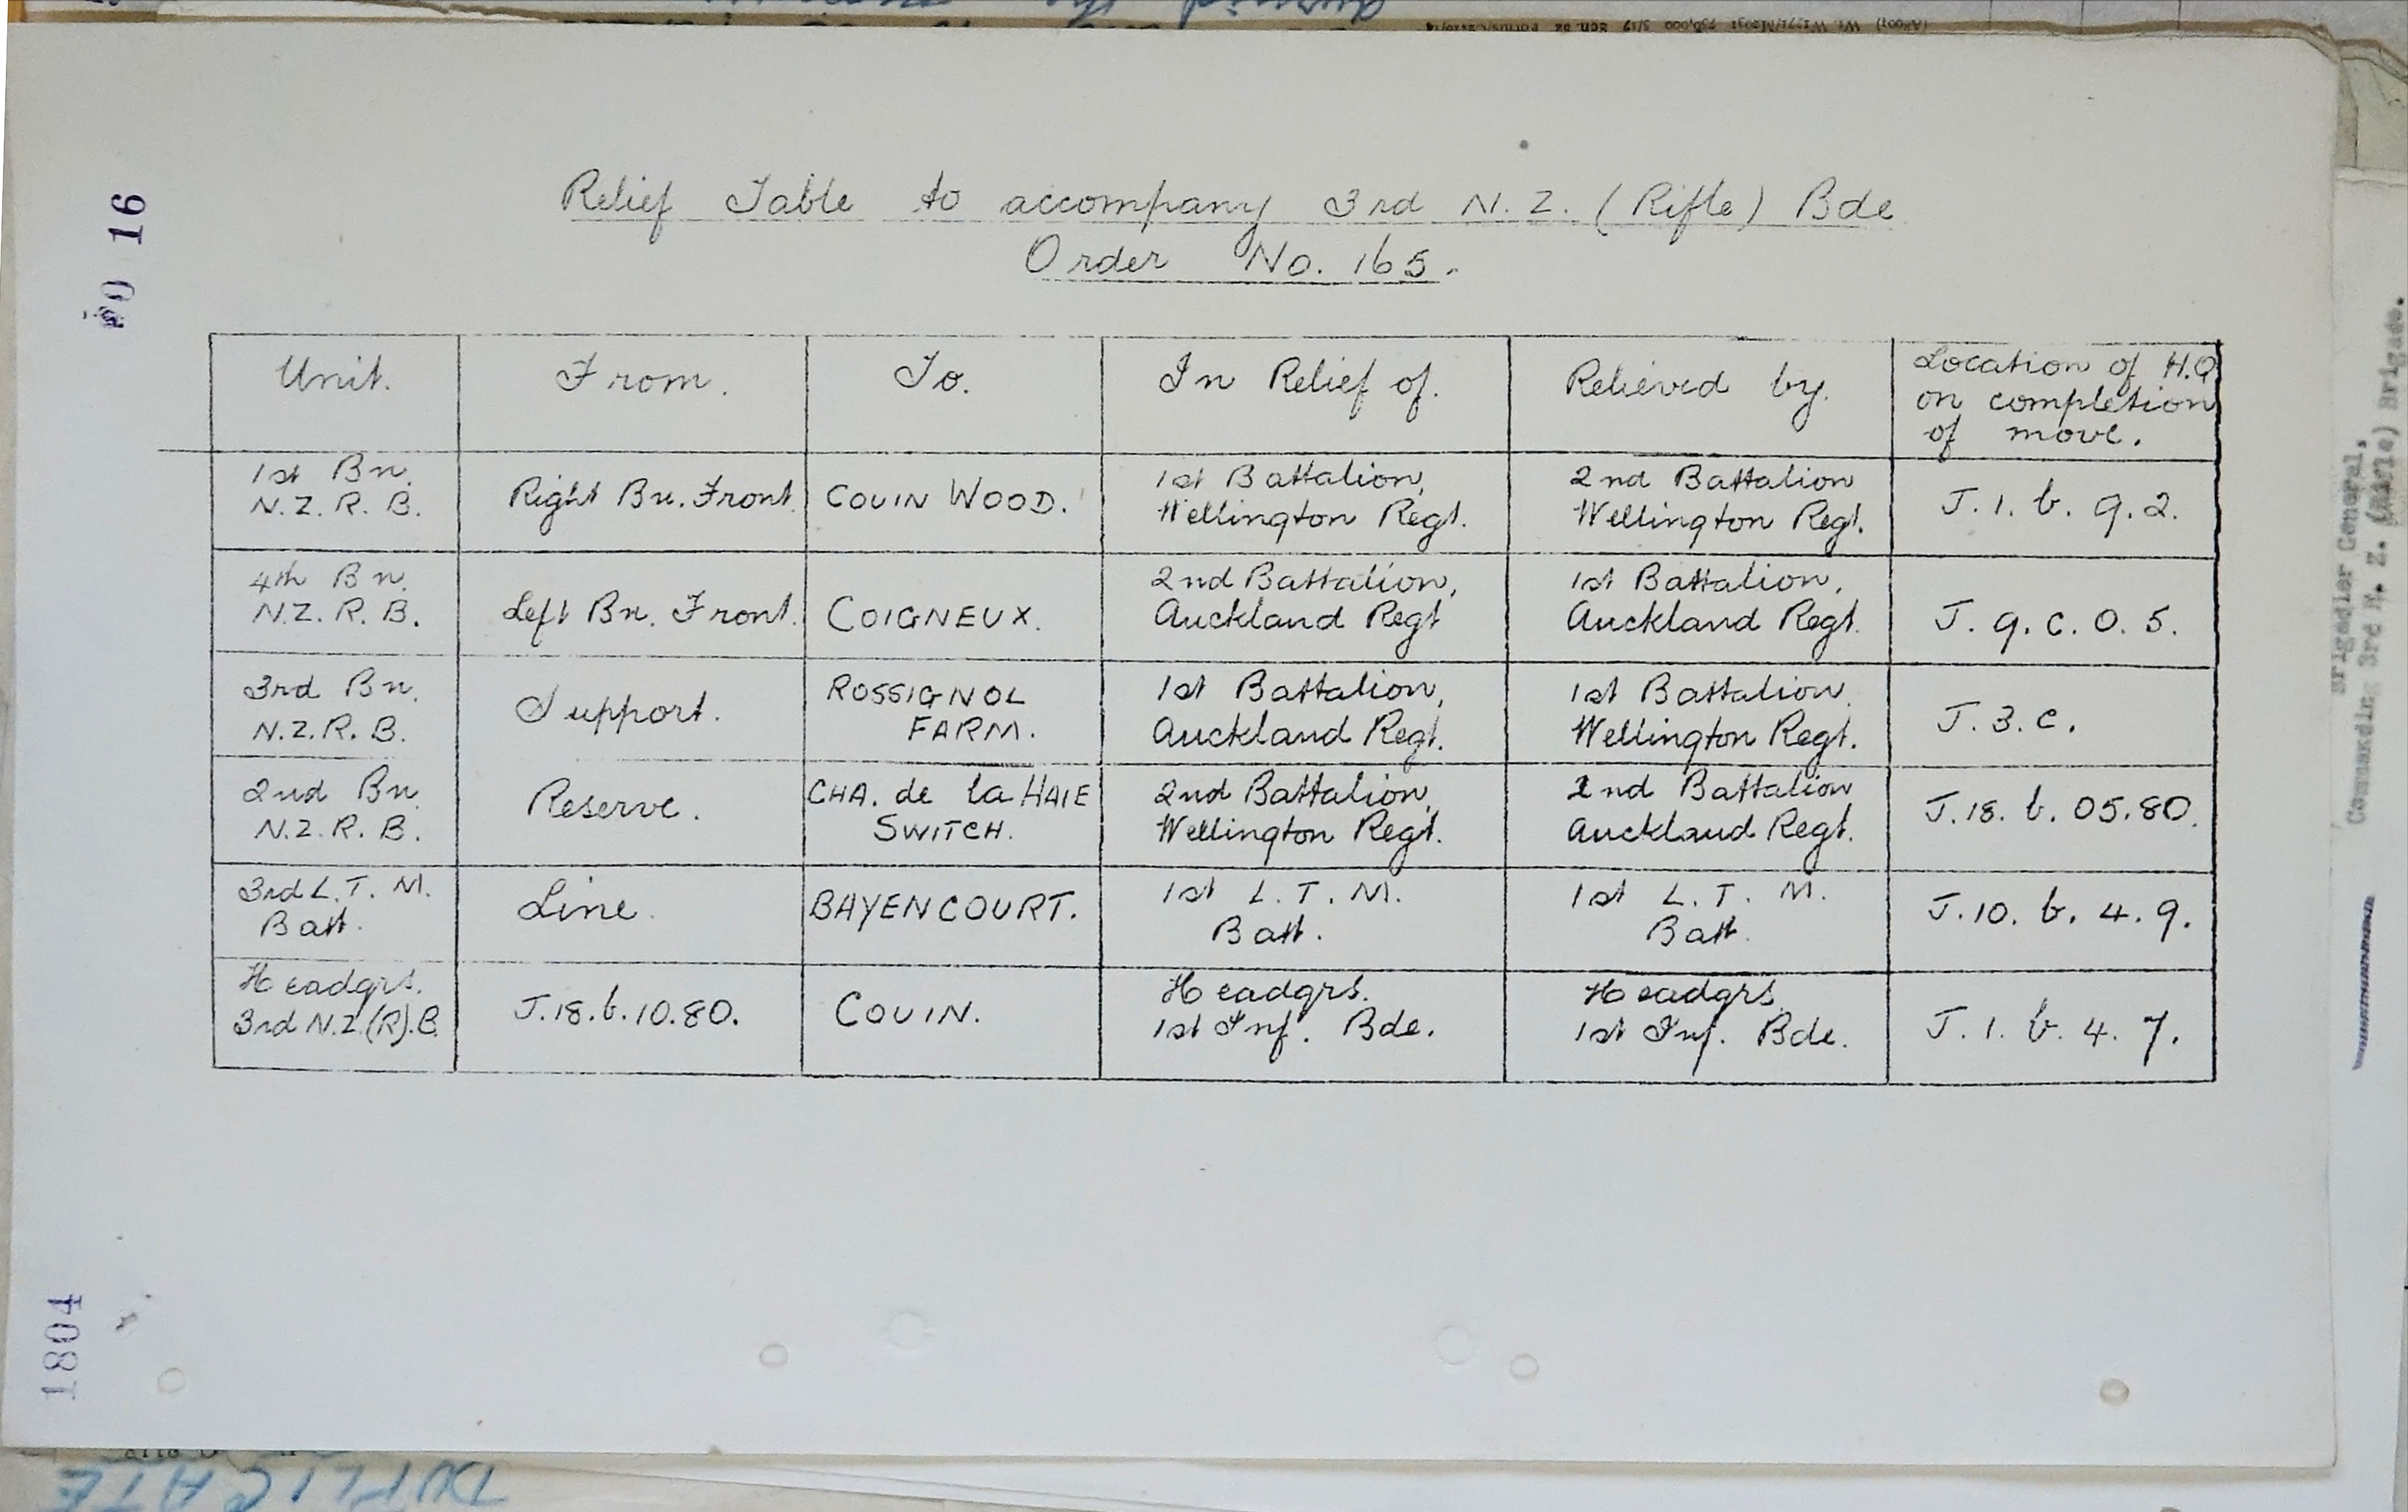 Relief Table to accompany 3rd N.Z. (Rifle) Bde
Order No. 165.
Unit.
From.
To.
In Relief of.
Relieved by.
Location of H.Q
on completion
of move.
1st Bn.
N.Z.R.B.
Right Bn. Front.
COUIN WOOD.
1st Battalion,
Wellington Regt.
2nd Battalion
Wellington Regt.
J.1.b.9.2.
4th Bn.
N.Z.R.B.
Left Bn. Front.
COIGNEUX.
2nd Battalion,
Auckland Regt
1st Battalion,
Auckland Regt.
J.9.c.0.5.
3rd Bn.
N.Z.R.B.
Support.
ROSSIGNOL
FARM.
1st Battalion,
Auckland Regt.
1st Battalion.
Wellington Regt.
J.3.c.
2nd Bn
N.Z.R.B.
Reserve.
CHA. de la HAIE
SWITCH.
2nd Battalion,
Wellington Regt.
2nd Battalion
Auckland Regt.
J.18.b.05.80.
3rd L.T.M.
Batt.
Line.
BAYENCOURT.
1st L.T.M.
Batt.
1st L.T.M.
Batt.
J.10.b.4.9.
Headqrs.
3rd N.Z.(R).B.
J.18.b.10.80.
COUIN.
Headqrs.
1st Inf. Bde.
Headqrs.
1st Inf. Bde.
J.1.b.4.7.
16
1804
Brigadier General,
Commanding 3rd N. Z. (Rifle) Brigade.
DUPLICATE